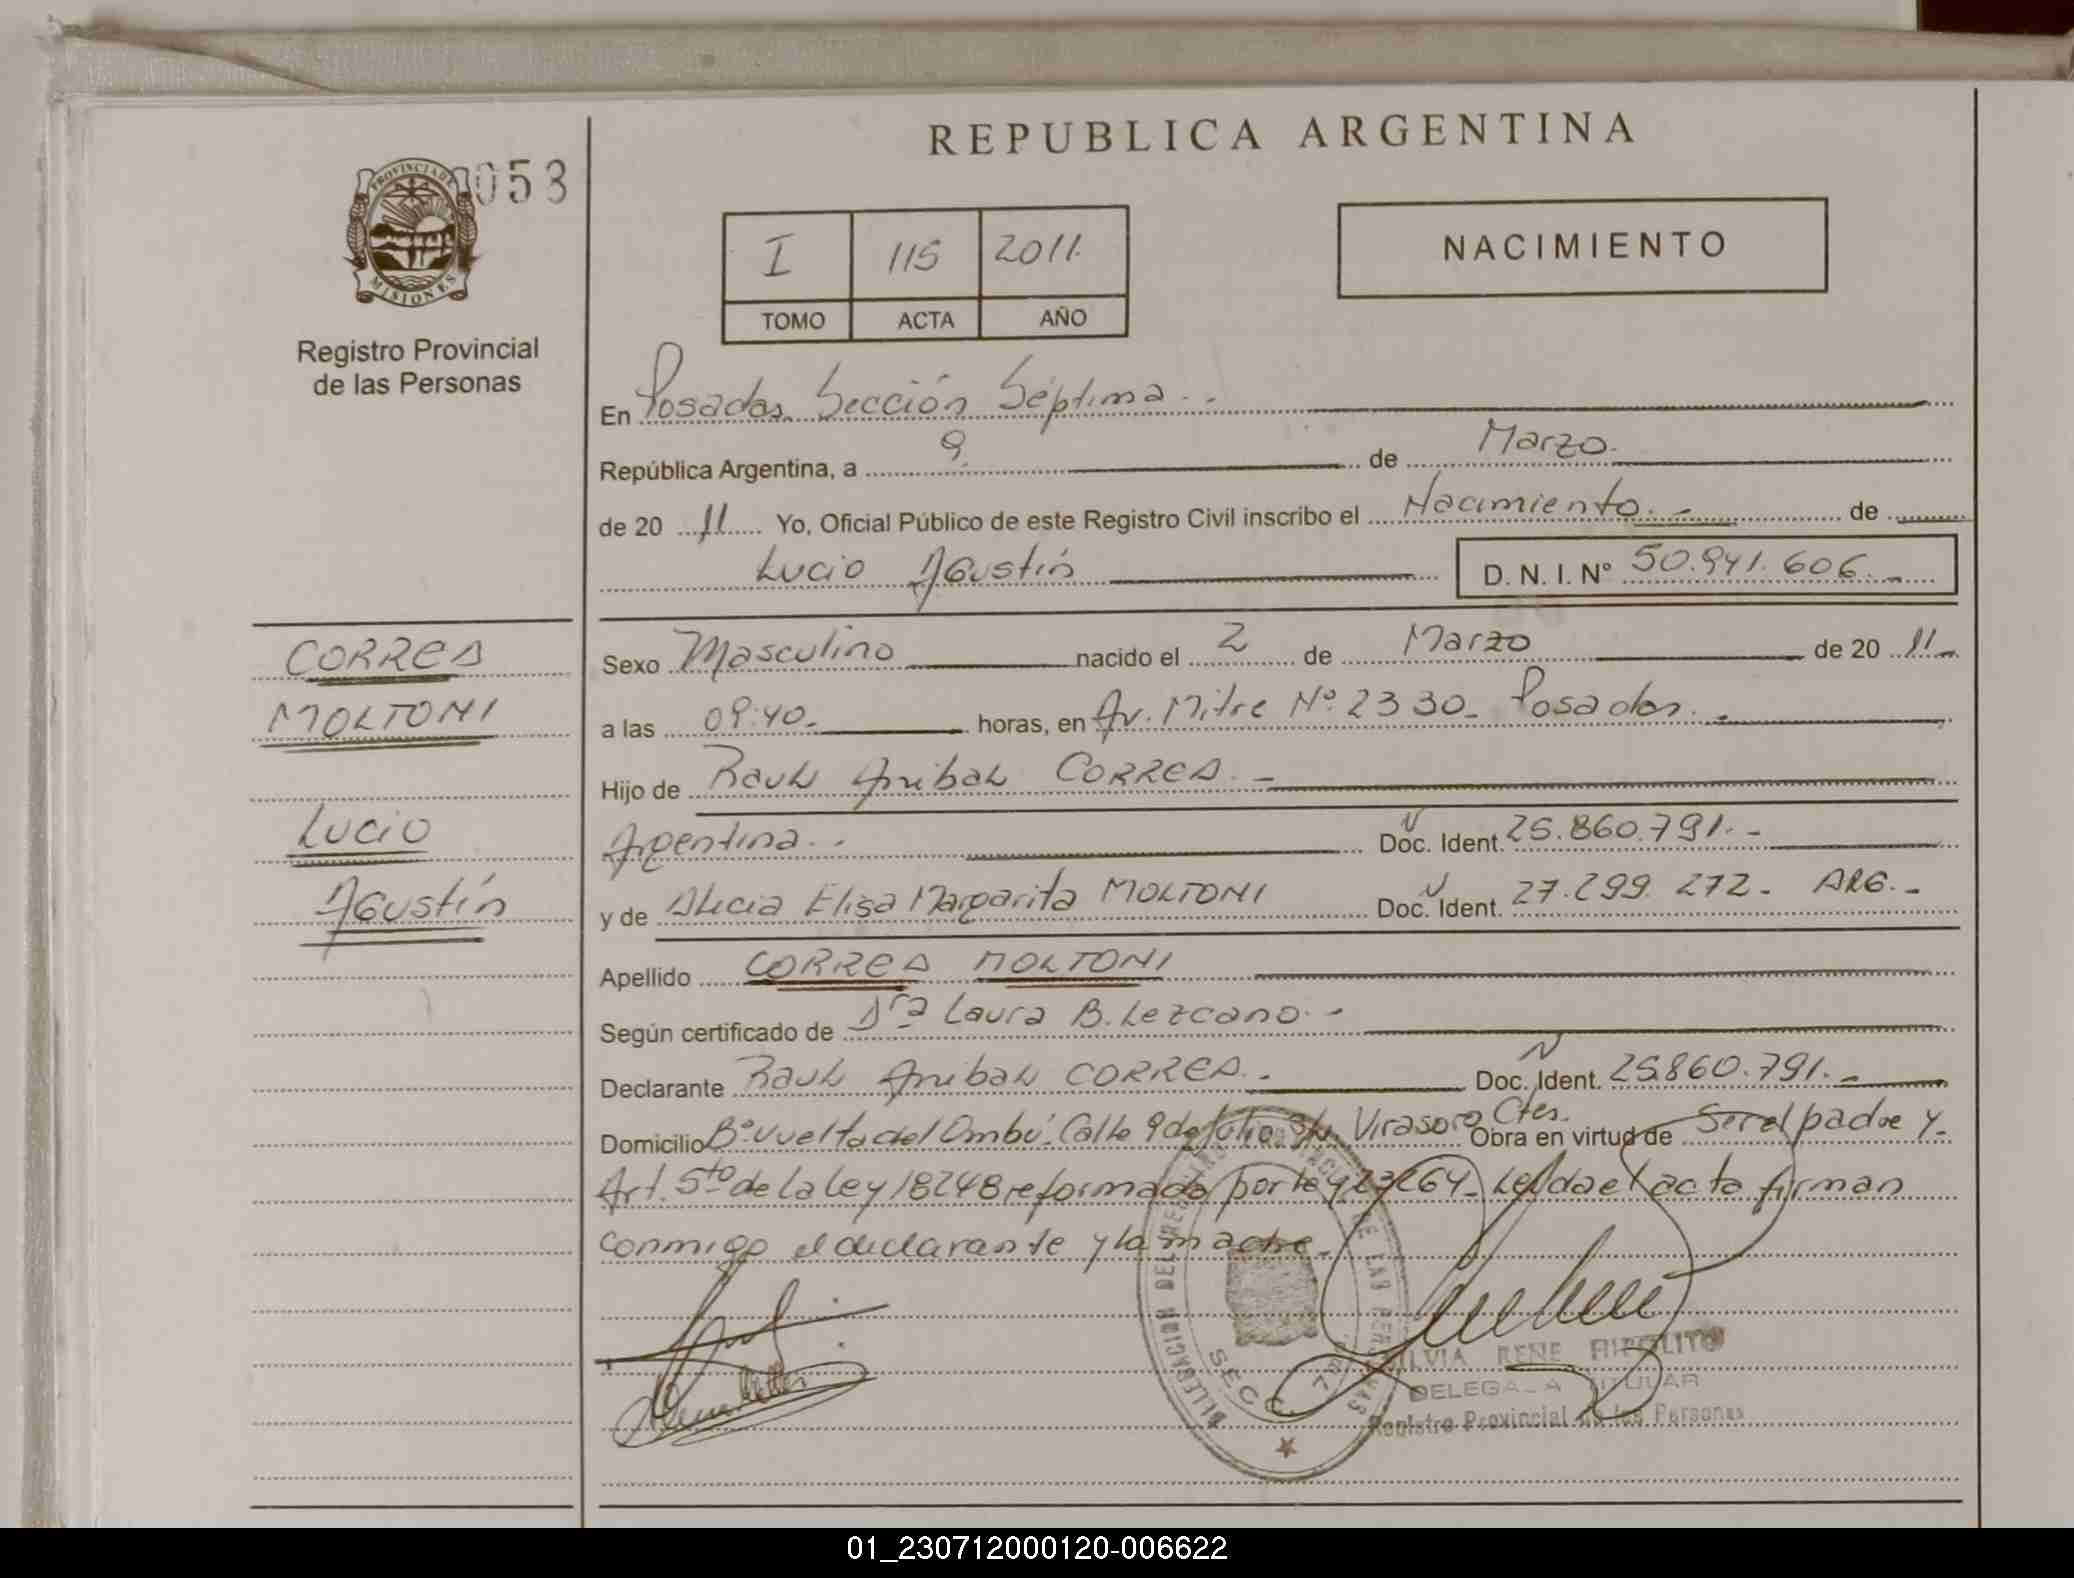 REPUBLICA ARGENTINA
053
PROVINCIA DE
MISIONES
Registro Provincial
de las Personas
I 115 2011.
TOMO ACTA AÑO
NACIMIENTO
En Posadas Sección Séptima.
República Argentina, a 9 de Marzo.
de 20 11 Yo, Oficial Público de este Registro Civil inscribo el Nacimiento. de
Lucio Agustín D. N. I. Nº 50.941.606
CORREA
MOLTONI
Lucio
Agustín
Sexo Masculino nacido el 2 de Marzo de 20 11
a las 09:40 horas, en Av. Mitre Nº 2330 Posadas.
Hijo de Raul Anibal CORREA.
Argentina. Doc. Ident. 25.860.791.
y de Alicia Elisa Margarita MOLTONI Doc. Ident. 27.299.272 ARG.
Apellido CORREA MOLTONI
Según certificado de Dra Laura B. Lezcano.
Declarante Raul Anibal CORREA. Doc. Ident. 25.860.791.
Domicilio Bº Vuelta del Ombú. Calle 9 de Julio S/N. Virasoro Ctes. Obra en virtud de Ser el padre y
Art. 5to de la ley 18248 reformado por ley 23264. Leída el acta firman
conmigo el declarante y la madre.
DELEGACION DEL REGISTRO PROVINCIAL DE LAS PERSONAS
SECC. 7
SILVIA RENE HIPOLITO
DELEGADA TITULAR
Registro Provincial de las Personas
01_230712000120-006622